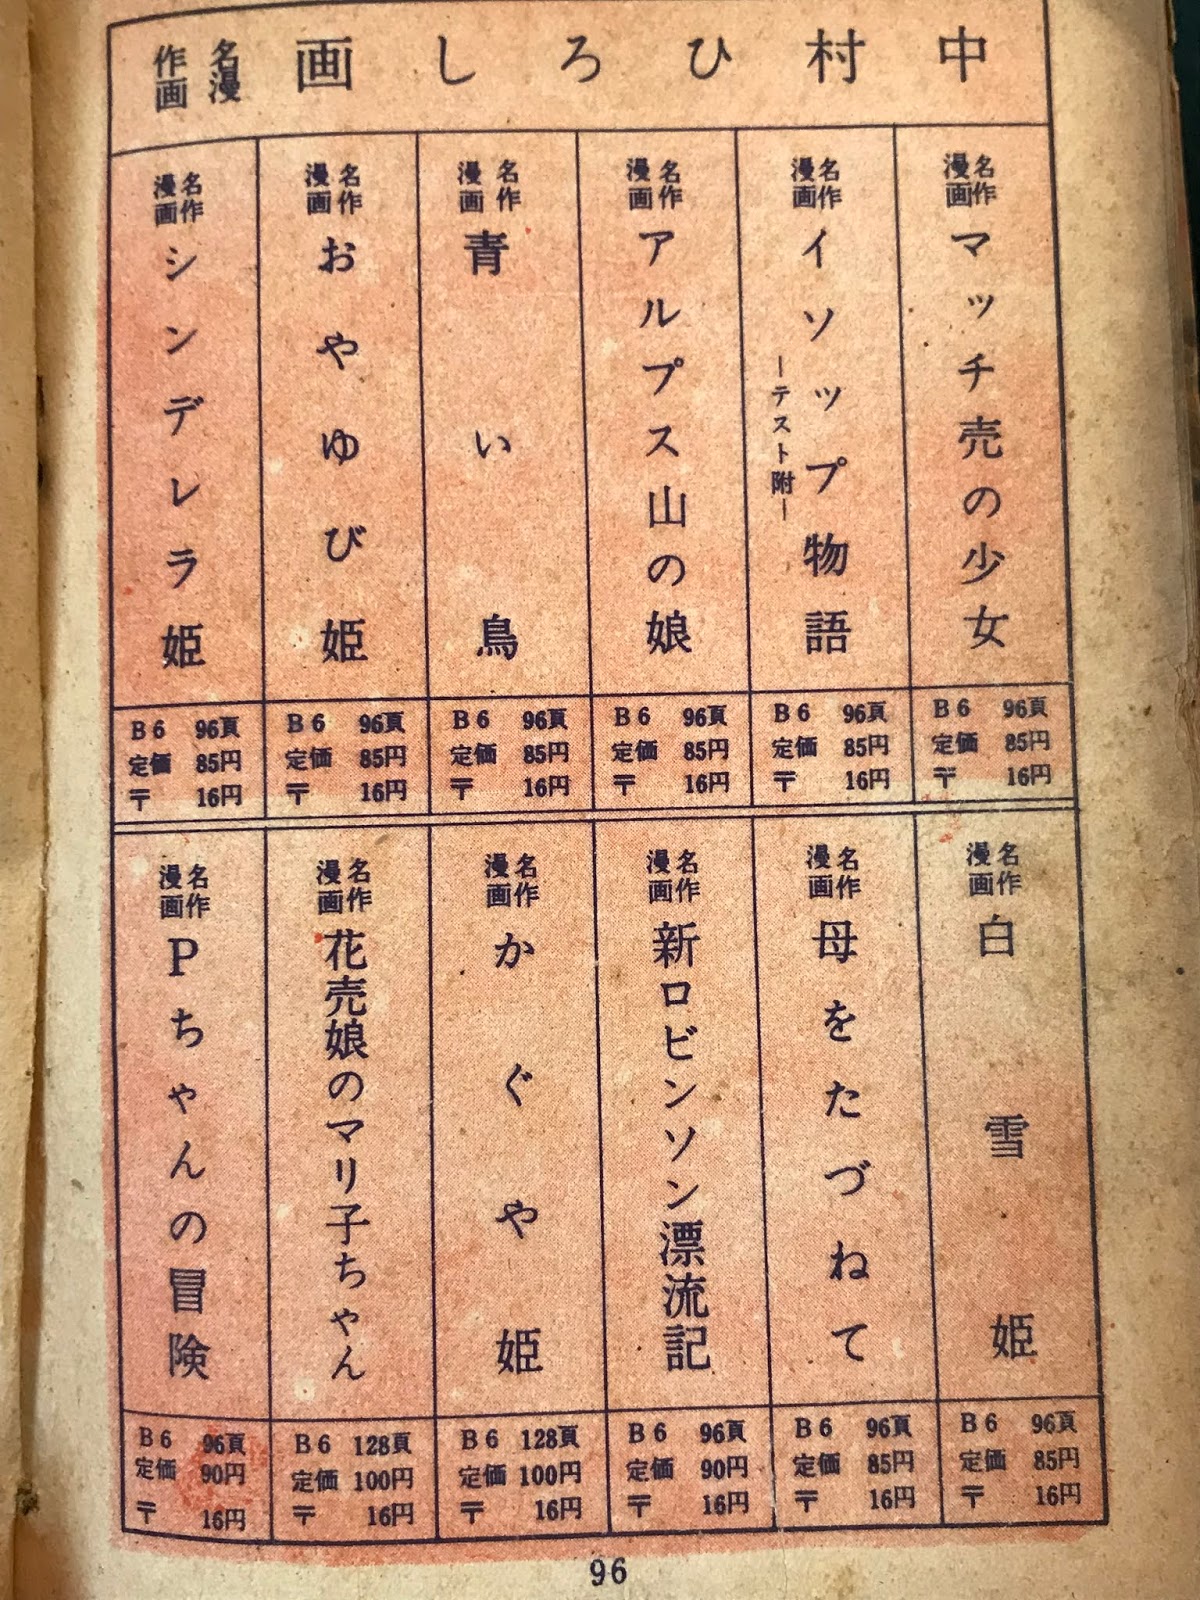 中村ひろし画 名作漫画
名作漫画 マッチ売の少女
B6 96頁
定価 85円
〒 16円
名作漫画 イソップ物語
―テスト附―
B6 96頁
定価 85円
〒 16円
名作漫画 アルプス山の娘
B6 96頁
定価 85円
〒 16円
名作漫画 青い鳥
B6 96頁
定価 85円
〒 16円
名作漫画 おやゆび姫
B6 96頁
定価 85円
〒 16円
名作漫画 シンデレラ姫
B6 96頁
定価 85円
〒 16円
名作漫画 白雪姫
B6 96頁
定価 85円
〒 16円
名作漫画 母をたづねて
B6 96頁
定価 85円
〒 16円
名作漫画 新ロビンソン漂流記
B6 96頁
定価 90円
〒 16円
名作漫画 かぐや姫
B6 128頁
定価 100円
〒 16円
名作漫画 花売娘のマリ子ちゃん
B6 128頁
定価 100円
〒 16円
名作漫画 Pちゃんの冒険
B6 96頁
定価 90円
〒 16円
96